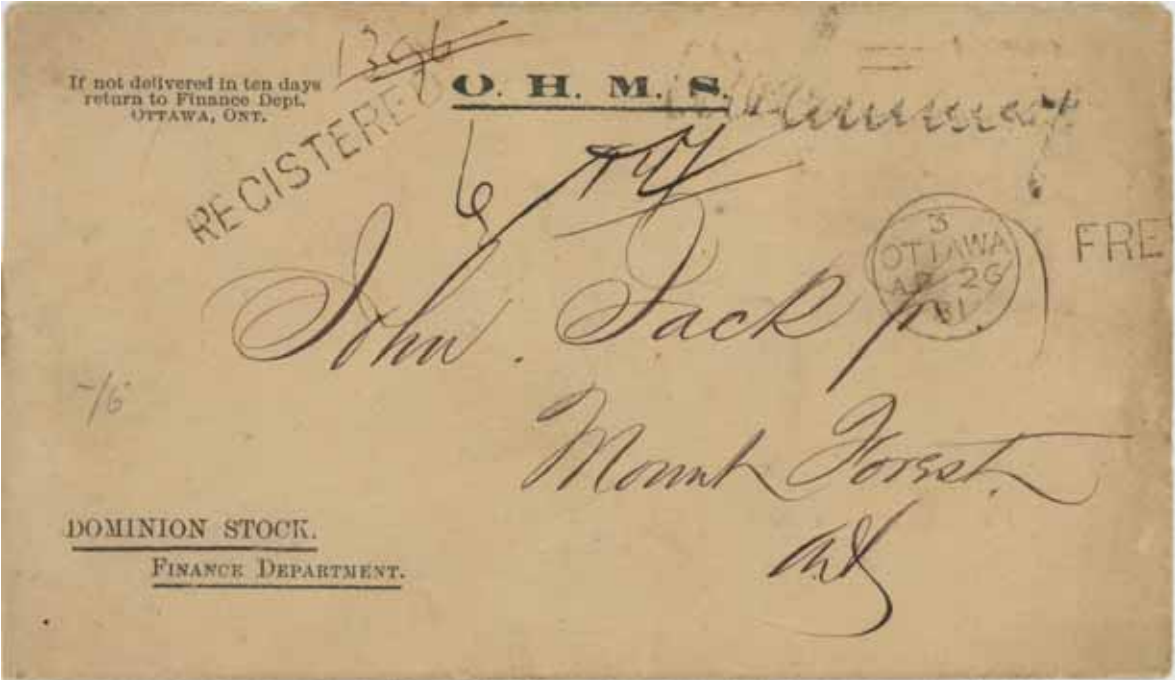 1396
If not delivered in ten days
return to Finance Dept.
OTTAWA, ONT.
O. H. M. S.
REGISTERED
6
3
OTTAWA
AP 26
81
FRE
John. Jack
Mount Forest.
DOMINION STOCK.
FINANCE DEPARTMENT.